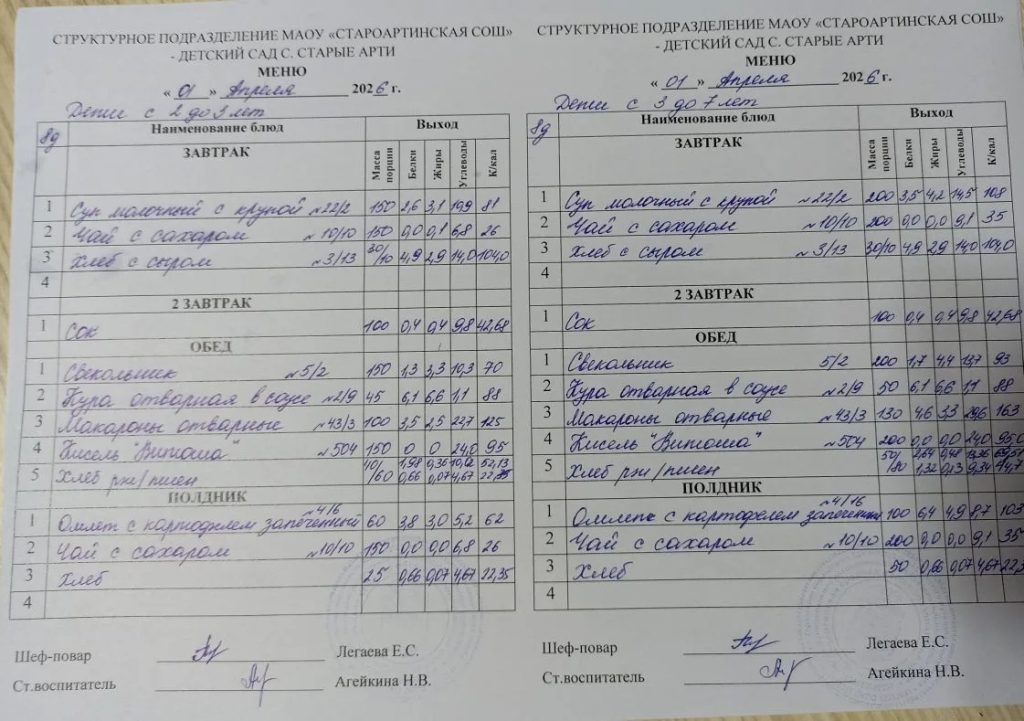 СТРУКТУРНОЕ ПОДРАЗДЕЛЕНИЕ МАОУ «СТАРОАРТИНСКАЯ СОШ»
- ДЕТСКИЙ САД С. СТАРЫЕ АРТИ
МЕНЮ
« 01 » Апреля 2026 г.
Дети с 2 до 3 лет
8д Наименование блюд Выход
ЗАВТРАК Масса порции Белки Жиры Углеводы К/кал
1 Суп молочный с крупой №22/2 150 2,6 3,1 10,9 81
2 Чай с сахаром №10/10 150 0,0 0,1 6,8 26
3 Хлеб с сыром №3/13 30/10 4,9 2,9 14,0 104,0
4
2 ЗАВТРАК
1 Сок 100 0,4 0,4 9,8 42,68
ОБЕД
1 Свекольник №5/2 150 1,3 3,3 10,3 70
2 Кура отварная в соусе №2/9 45 6,1 6,6 1,1 88
3 Макароны отварные №43/3 100 3,5 2,5 22,7 125
4 Кисель "Витоша" №504 150 0 0 24,0 95
5 Хлеб рж/пшен 40/60 1,98 0,36 10,02 52,13
0,66 0,07 4,67 22,35
ПОЛДНИК
№4/6
1 Омлет с картофелем запеченный 60 3,8 3,0 5,2 62
2 Чай с сахаром №10/10 150 0,0 0,0 6,8 26
3 Хлеб 25 0,66 0,07 4,67 22,35
4
Шеф-повар Легаева Е.С.
Ст.воспитатель Агейкина Н.В.
СТРУКТУРНОЕ ПОДРАЗДЕЛЕНИЕ МАОУ «СТАРОАРТИНСКАЯ СОШ»
- ДЕТСКИЙ САД С. СТАРЫЕ АРТИ
МЕНЮ
« 01 » Апреля 2026 г.
Дети с 3 до 7 лет
8д Наименование блюд Выход
ЗАВТРАК Масса порции Белки Жиры Углеводы К/кал
1 Суп молочный с крупой №22/2 200 3,5 4,2 14,5 108
2 Чай с сахаром №10/10 200 0,0 0,0 9,1 35
3 Хлеб с сыром №3/13 30/10 4,9 2,9 14,0 104,0
4
2 ЗАВТРАК
1 Сок 100 0,4 0,4 9,8 42,68
ОБЕД
1 Свекольник 5/2 200 1,7 4,4 13,7 93
2 Кура отварная в соусе №2/9 50 6,1 6,6 1,1 88
3 Макароны отварные №43/3 130 4,6 3,3 29,6 163
4 Кисель "Витоша" №504 200 0,0 0,0 24,0 95,0
5 Хлеб рж/пшен 50/80 2,64 0,48 13,36 69,51
1,32 0,13 9,34 44,7
ПОЛДНИК
№4/16
1 Омлет с картофелем запеченный 100 6,4 4,9 8,7 103
2 Чай с сахаром №10/10 200 0,0 0,0 9,1 35
3 Хлеб 50 0,66 0,07 4,67 22,3
4
Шеф-повар Легаева Е.С.
Ст.воспитатель Агейкина Н.В.